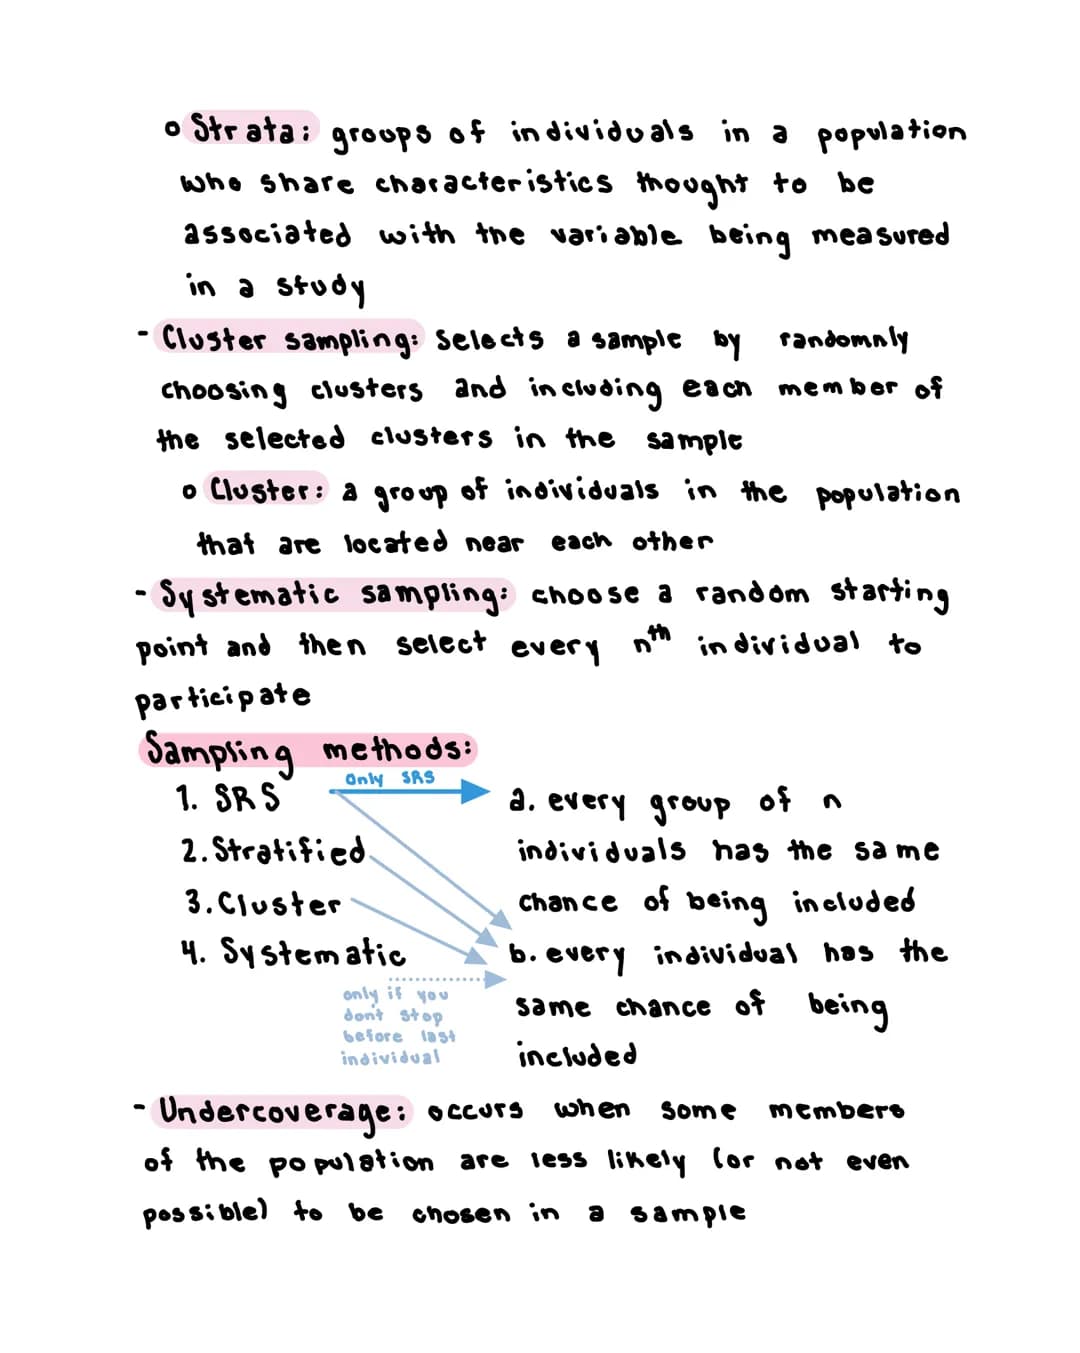 o Strata: groups of individuals in a population
who share characteristics thought to be
associated with the variable being measured
in a study
- Cluster sampling: selects a sample by randomnly
choosing clusters and including each member of
the selected clusters in the sample
o Cluster: a group of individuals in the population
that are located near each other
- Systematic sampling: choose a random starting
point and then select every nth individual to
participate
Sampling methods:
Only SRS
1. SRS
2. Stratified
3. Cluster
4. Systematic
only if you
dont stop
before last
individual
a. every group of n
individuals has the same
chance of being included
b. every individual has the
same chance of being
included
- Undercoverage: occurs when some members
of the population are less likely (or not even
possible) to be chosen in a sample